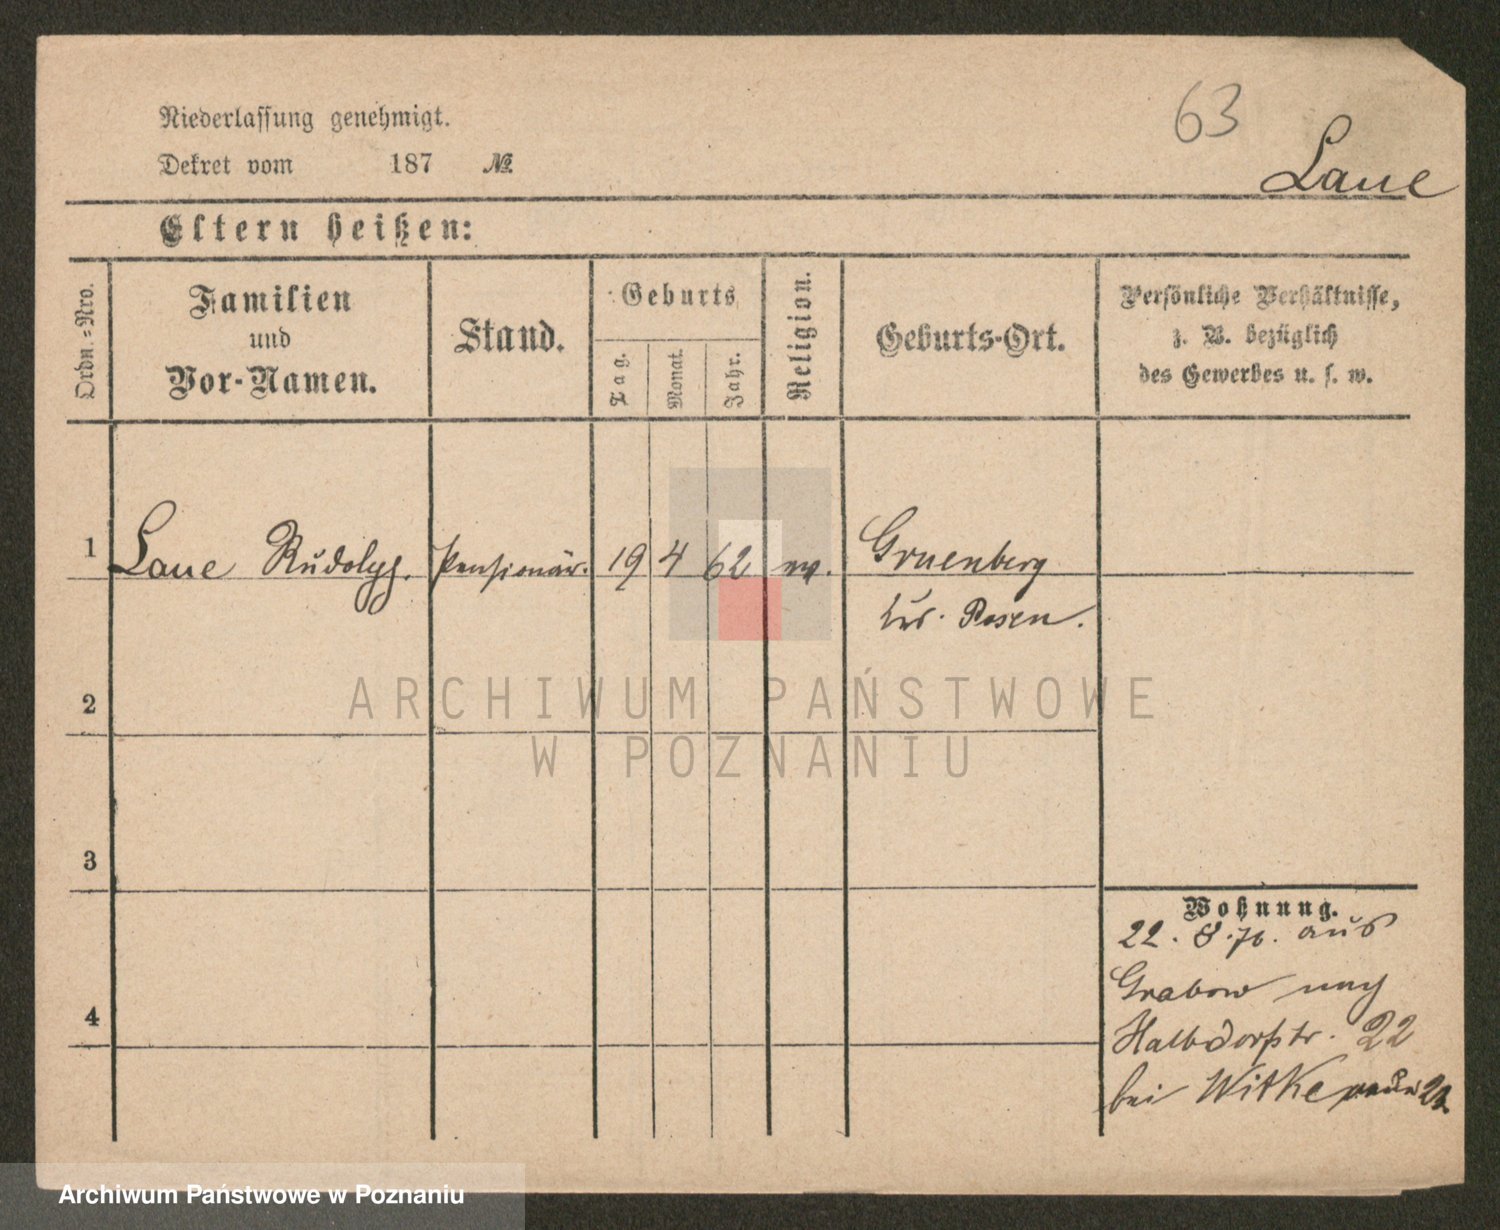 63
Niederlassung genehmigt.
Dekret vom 187 №
Laue
Eltern heißen:
Ordn.-Nro.
Familien und Vor-Namen.
Stand.
Geburts
Tag.
Monat.
Jahr.
Religion.
Geburts-Ort.
Persönliche Verhältnisse,
z. B. bezüglich
des Gewerbes u. s. w.
1 Laue Rudolph. Pensionär. 19 4 62 Gruenberg
Posen.
2
3
4
Wohnung.
22. 8. aus
Grabow nach
Halbdorfstr. 22
bei Witke
ARCHIWUM PAŃSTWOWE
W POZNANIU
Archiwum Państwowe w Poznaniu